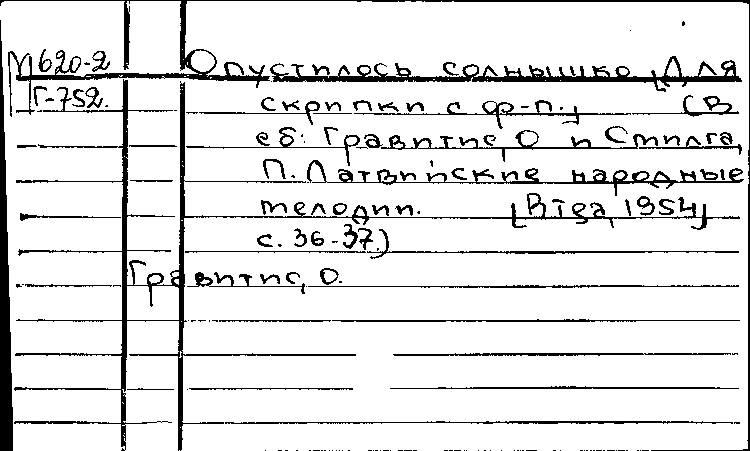 М620-2 Опустилось солнышко [Для
Г-752. скрипки с ф-п.] (В
сб: Гравитис, О и Стилга,
П. Латвийские народные
мелодии. [Втда, 1954]
с. 36-37.)
Гравитис, О.